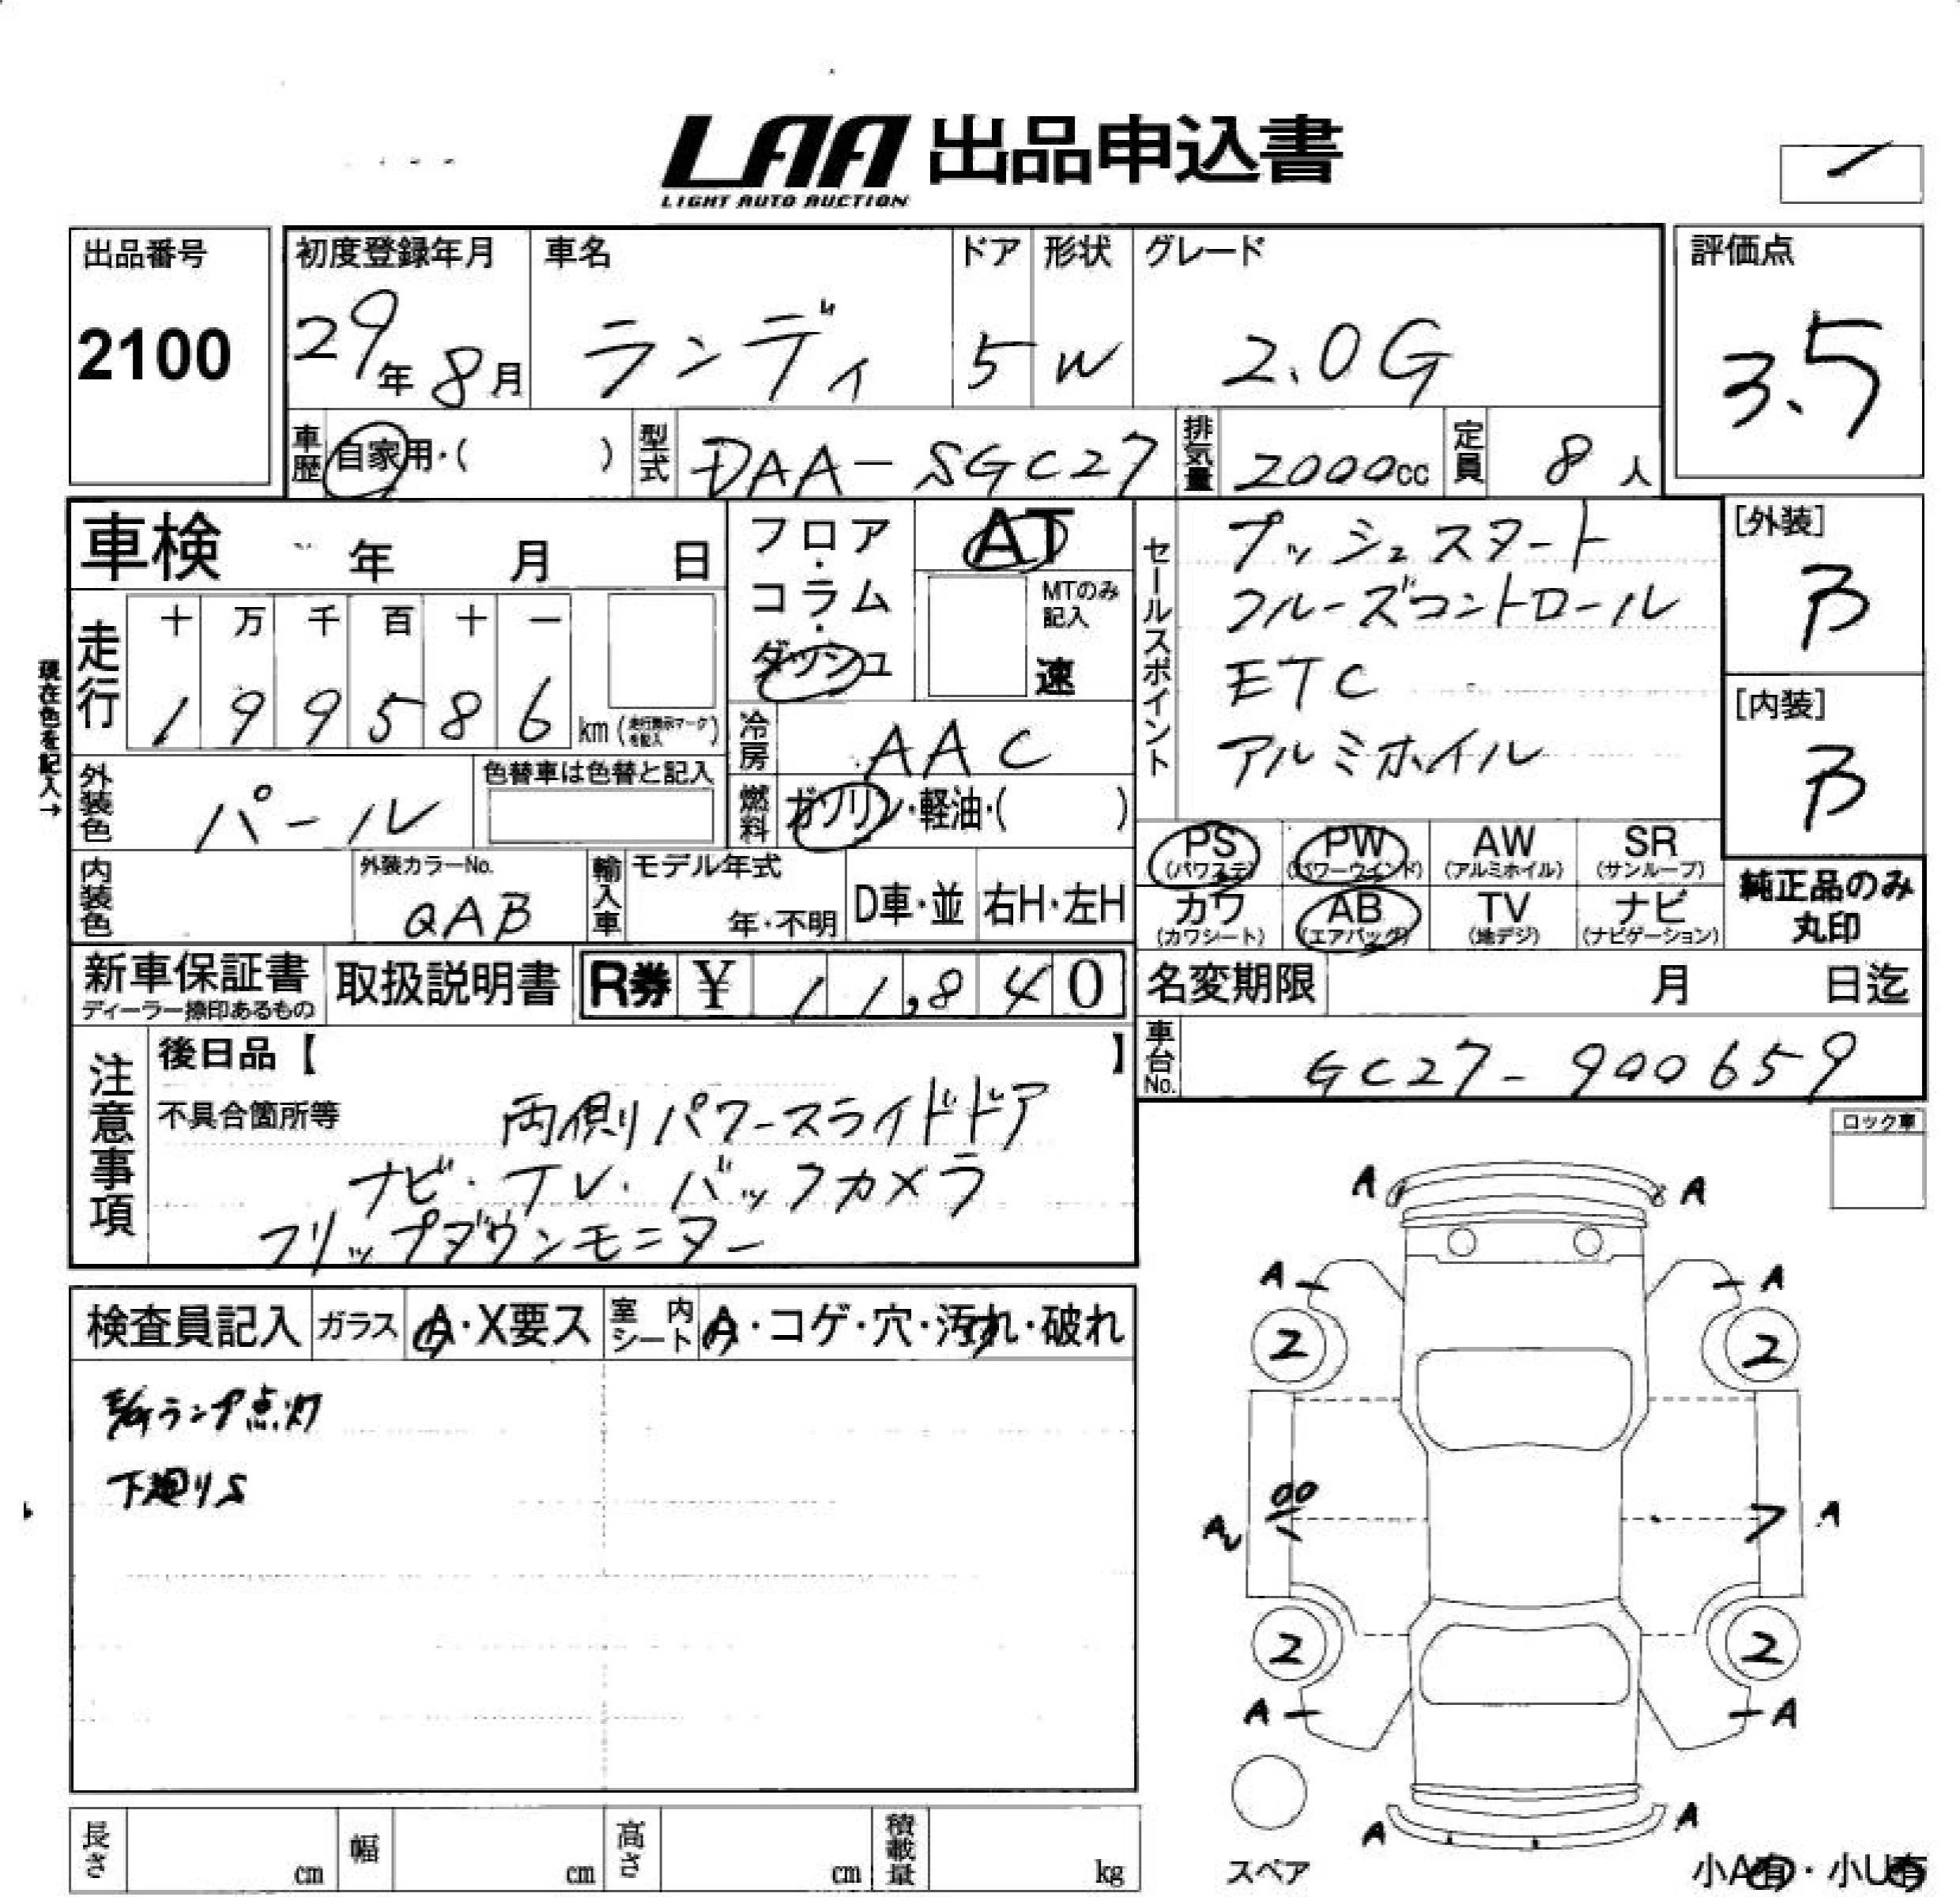 LAA 出品申込書
LIGHT AUTO AUCTION
出品番号
2100
初度登録年月
29年 8月
車名
ランディ
ドア
5
形状
W
グレード
2.0G
評価点
3.5
車歴
自家用・( )
型式
DAA-SGC27
排気量
2000cc
定員
8人
車検 年 月 日
フロア・コラム・ダッシュ
AT
MTのみ記入
速
セールスポイント
プッシュスタート
クルーズコントロール
ETC
アルミホイル
[外装]
B
[内装]
B
現在色を記入→
走行
十 万 千 百 十 一
1 9 9 5 8 6 km (走行表示マークを記入)
冷房
AAC
外装色
パール
色替車は色替と記入
燃料
ガソリン・軽油・( )
PS (パワステ)
PW (パワーウインド)
AW (アルミホイル)
SR (サンルーフ)
内装色
外装カラーNo.
QAB
輸入車
モデル年式
年・不明
D車・並
右H・左H
カワ (カワシート)
AB (エアバッグ)
TV (地デジ)
ナビ (ナビゲーション)
純正品のみ
丸印
新車保証書
ディーラー捺印あるもの
取扱説明書
R券 ¥ 11,840
名変期限 月 日迄
車台No.
GC27-900659
注意事項
後日品【 】
不具合箇所等
両側パワースライドドア
ナビ・TV・バックカメラ
フリップダウンモニター
ロック車
検査員記入
ガラス
A・X要ス
室内シート
A・コゲ・穴・汚れ・破れ
ランプ点灯
下廻りS
A A
A A
2 2
A A
2 2
A A
A A
スペア
小A有・小U有
長さ cm
幅 cm
高さ cm
積載量 kg